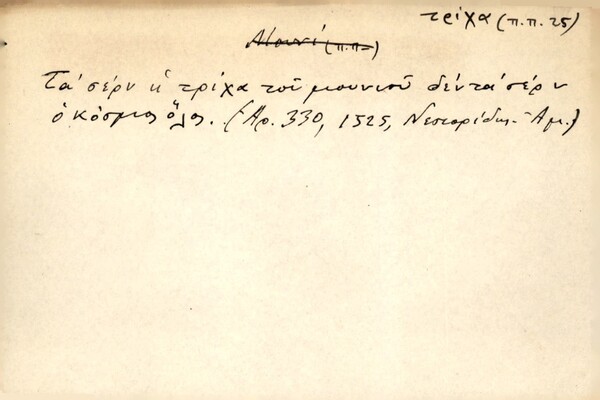 τρίχα (π.π. 25)
Μουνί (π.π.)
Τά σέρν ἡ τρίχα τοῦ μουνιοῦ δέν τά σέρν
ὁ κόσμος ὅλος. (Ἀρ. 330, 1525, Νεστορίδης - Ἀμ.)